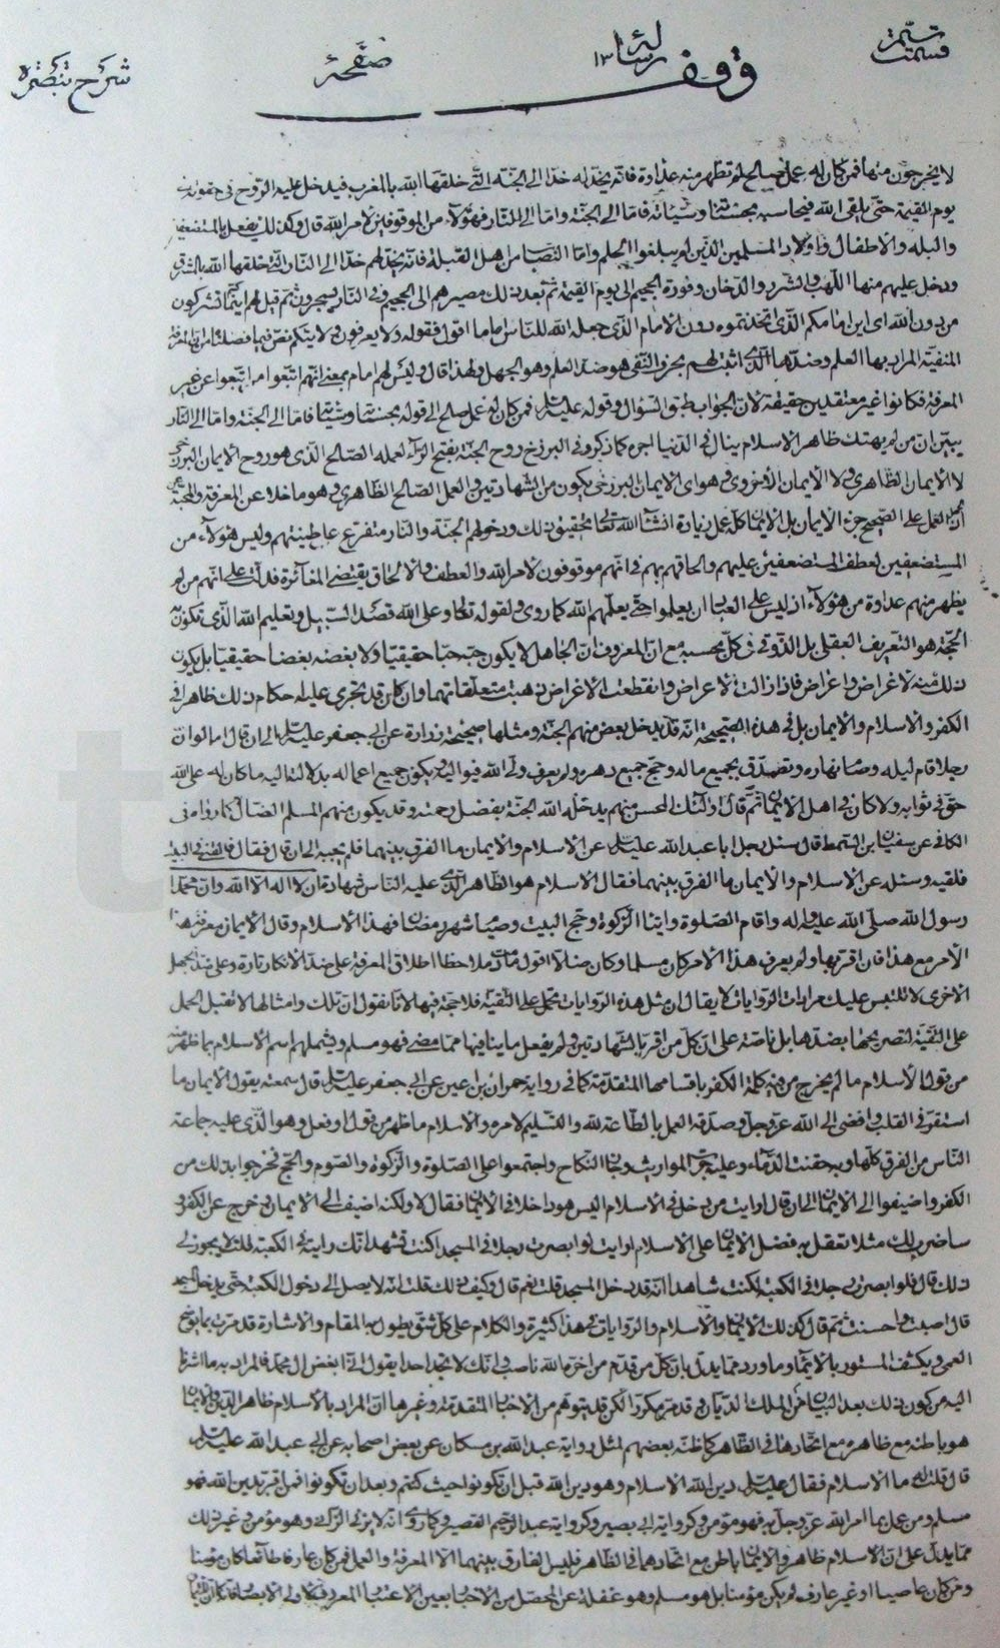 تتمة قسمت
رسالة ١٣
وقف
صفحة
شرح تبصرة
لا يخرجون منها فمن كان له عمل صالح لم تظهر منه عداوة فانه يخد له خدا الى الجنة التي خلقها الله بالمغرب فيدخل عليه الروح في حفرته
يوم القيمة حتى يلقى الله فيحاسبه بحسناته وسيئاته فاما الى الجنة واما الى النار فهؤلاء من الموقوفين لامر الله قال وكذلك يفعل بالمستضعفين
والبله والاطفال واولاد المسلمين الذين لم يبلغوا الحلم واما النصاب من اهل القبلة فانه يخد لهم خدا الى النار التي خلقها الله بالمشرق
ودخل عليهم منها اللهب والشرر والدخان وفورة الجحيم الى يوم القيمة ثم بعد ذلك مصيرهم الى الجحيم وفي النار يسجرون ثم قيل لهم اينما كنتم تشركون
من دون الله اى اين امامكم الذي اتخذتموه دون الامام الذي جعله الله للناس اماما اقول فقوله ولا يعرفون
المنفية المراد بها العلم وضدها الذي اثبت لهم بحرف النفى هو ضد العلم وهو الجهل ولهذا قال وليس لهم امام بمعنى انهم اتبعوا من اتبعوا عن غير
المعرفة فكانوا غير معتقدين حقيقة لان الجواب طبق السؤال وقوله عليه السلام فمن كان له عمل صالح الى قوله بحسناته وسيئاته فاما الى الجنة واما الى النار
يبين ان من لم يهتك ظاهر الاسلام ينال في الدنيا اجره كما ذكر وفي البرزخ روح الجنة بفتح الراء لعمله الصالح الذي هو روح الايمان البرزخى
لا الايمان الظاهرى ولا الايمان الاخروى وهو اى الايمان البرزخى يكون من الشهادتين والعمل الصالح الظاهرى وهو ما خلا عن المعرفة والمحبة
العمل على الصحيح جزء الايمان بل الايمان كله عمل زيادة انشاء الله تعالى تحقيق ذلك ودخولهم الجنة والنار متفرع على طينتهم وليس هؤلاء من
المستضعفين لعطف المستضعفين عليهم والحاقهم بهم في انهم موقوفون لامر الله والعطف والالحاق يقتضى المغائرة فدلت على انهم من لم
يظهر منهم عداوة من هؤلاء اذ ليس على العباد ان يعلموا حتى يعلمهم الله كما روى ولقوله تعالى وعلى الله قصد السبيل وتعليم الله الذي تكون
الحجة هو التعريف العقلى بل الذوقى في كل بحسبه مع ان المعروف ان الجاهل لا يكون حبه حبا حقيقيا ولا بغضه بغضا حقيقيا بل يكون
ذلك منه لاغراض واعراض فاذا زالت الاعراض وانقطعت الاغراض ذهبت متعلقاتهما وان كان قد تجرى عليه احكام ذلك ظاهرا في
الكفر والاسلام والايمان بل في هذه الصحيحة انه قد يدخل بعض منهم الجنة ومثلها صحيحة زرارة عن ابى جعفر عليه السلام الى ان قال اما لو ان
رجلا قام ليله وصام نهاره وتصدق بجميع ماله وحج جميع دهره ولم يعرف ولى الله فيواليه ويكون جميع اعماله بدلالته اليه ما كان له على الله
حق في ثوابه ولا كان في اهل الايمان ثم قال اولئك المحسن منهم يدخله الله الجنة بفضل رحمته وقد يكون منهم المسلم الضال كما رواه في
الكافى عن سفيان بن السمط قال سئل رجل ابا عبد الله عليه السلام عن الاسلام والايمان ما الفرق بينهما فلم يجبه الى ان قال فقال فالقنى في البيت
فلقيه وسئله عن الاسلام والايمان ما الفرق بينهما فقال الاسلام هو الظاهر الذي عليه الناس شهادة ان لا اله الا الله وان محمدا
رسول الله صلى الله عليه واله واقام الصلوة وايتاء الزكوة وحج البيت وصيام شهر رمضان فهذا الاسلام وقال الايمان معرفة هذا
الامر مع هذا فان اقر بها ولم يعرف هذا الامر كان مسلما وكان ضالا اقول ملاحظا اطلاق المعرفة على ضد الانكار تارة وعلى ضد الجهل
الاخرى لا تلتبس عليك مرادات الروايات لا يقال ان مثل هذه الروايات تحمل على التقية فلا حجة فيها لانا نقول ان تلك وامثالها لا تقبل الحمل
على التقية لتصريحها بضدها بل ناصة على ان كل من اقر بالشهادتين ولم يفعل ما ينافيها مما مضى فهو مسلم ويشملهم اسم الاسلام بما ظهر
من قول الاسلام ما لم يخرج من فيه كلمة الكفر باقسامها المتقدمة كما في رواية حمران بن اعين عن ابى جعفر عليه السلام قال سمعته يقول الايمان ما
استقر في القلب وافضى الى الله عز وجل وصدقه العمل بالطاعة لله والتسليم لامره والاسلام ما ظهر من قول او فعل وهو الذي عليه جماعة
الناس من الفرق كلها وبه حقنت الدماء وعليه جرت المواريث وجاز النكاح واجتمعوا على الصلوة والزكوة والصوم والحج فخرجوا بذلك من
الكفر واضيفوا الى الايمان الى ان قال ارايت من دخل في الاسلام اليس هو داخلا في الايمان فقال لا ولكنه اضيف الى الايمان وخرج عن الكفر
ساضرب لك مثلا تعقل به فضل الايمان على الاسلام ارايت لو ابصرت رجلا في المسجد اكنت تشهد انك رايته في الكعبة قلت لا يجوز لى
ذلك قال فلو ابصرت رجلا في الكعبة اكنت شاهدا انه قد دخل المسجد قلت نعم قال وكيف ذلك قلت انه لا يصل الى دخول الكعبة حتى يدخل المسجد
قال اصبت واحسنت ثم قال كذلك الايمان والاسلام والروايات في هذا كثيرة والكلام على كل شق يطول به المقام والاشارة قد مرت بما يوضح
العمى ويكشف المستور بالايماء وما ورد مما يدل بان كل من قدم من اخره الله ناصب وانك لا تجد احدا يقول انا ابغض ال محمد فالمراد به ما اشرنا
اليه من كون ذلك بعد البيان من الملك الديان وقد مر مكررا لكن قد يتوهم من الاخبار المتقدمة وغيرها ان المراد بالاسلام ظاهر الدين والايمان
هو باطنه مع ظاهره مع اتحادهما في الظاهر كما ظنه بعضهم لمثل رواية عبد الله بن مسكان عن بعض اصحابه عن ابى عبد الله عليه السلام
قال قلت له ما الاسلام فقال عليه السلام دين الله الاسلام وهو دين الله قبل ان تكونوا حيث كنتم وبعد ان تكونوا فمن اقر بدين الله فهو
مسلم ومن عمل بما امر الله عز وجل به فهو مؤمن وكرواية ابى بصير وكرواية عبد الرحيم القصير وكما روى انه لا يزنى الزانى وهو مؤمن وغير ذلك
مما يدل على ان الاسلام ظاهر والايمان باطن مع اتحادهما في الظاهر فليس الفارق بينهما الا المعرفة والعمل فمن كان عارفا طائعا كان مؤمنا
ومن كان عاصيا او غير عارف لم يكن مؤمنا بل هو مسلم وهو غفلة عن المحصل من الاخبار بعين الاعتبار